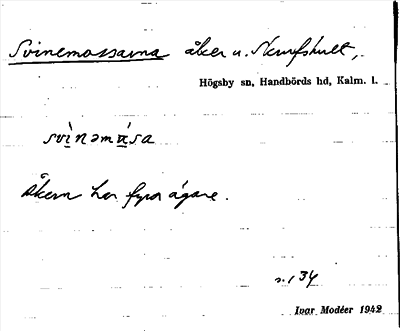 Svinemossarna åker u. Skurfhult,
Högsby sn, Handbörds hd, Kalm. l.
svìnəmása
Åkern har fyra ägare.
s. 134
Ivar Modéer 1942